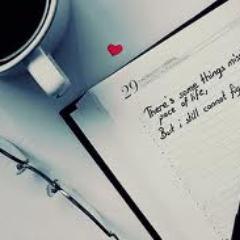 29
There's some things mis
pace of life,
But i still cannot fig